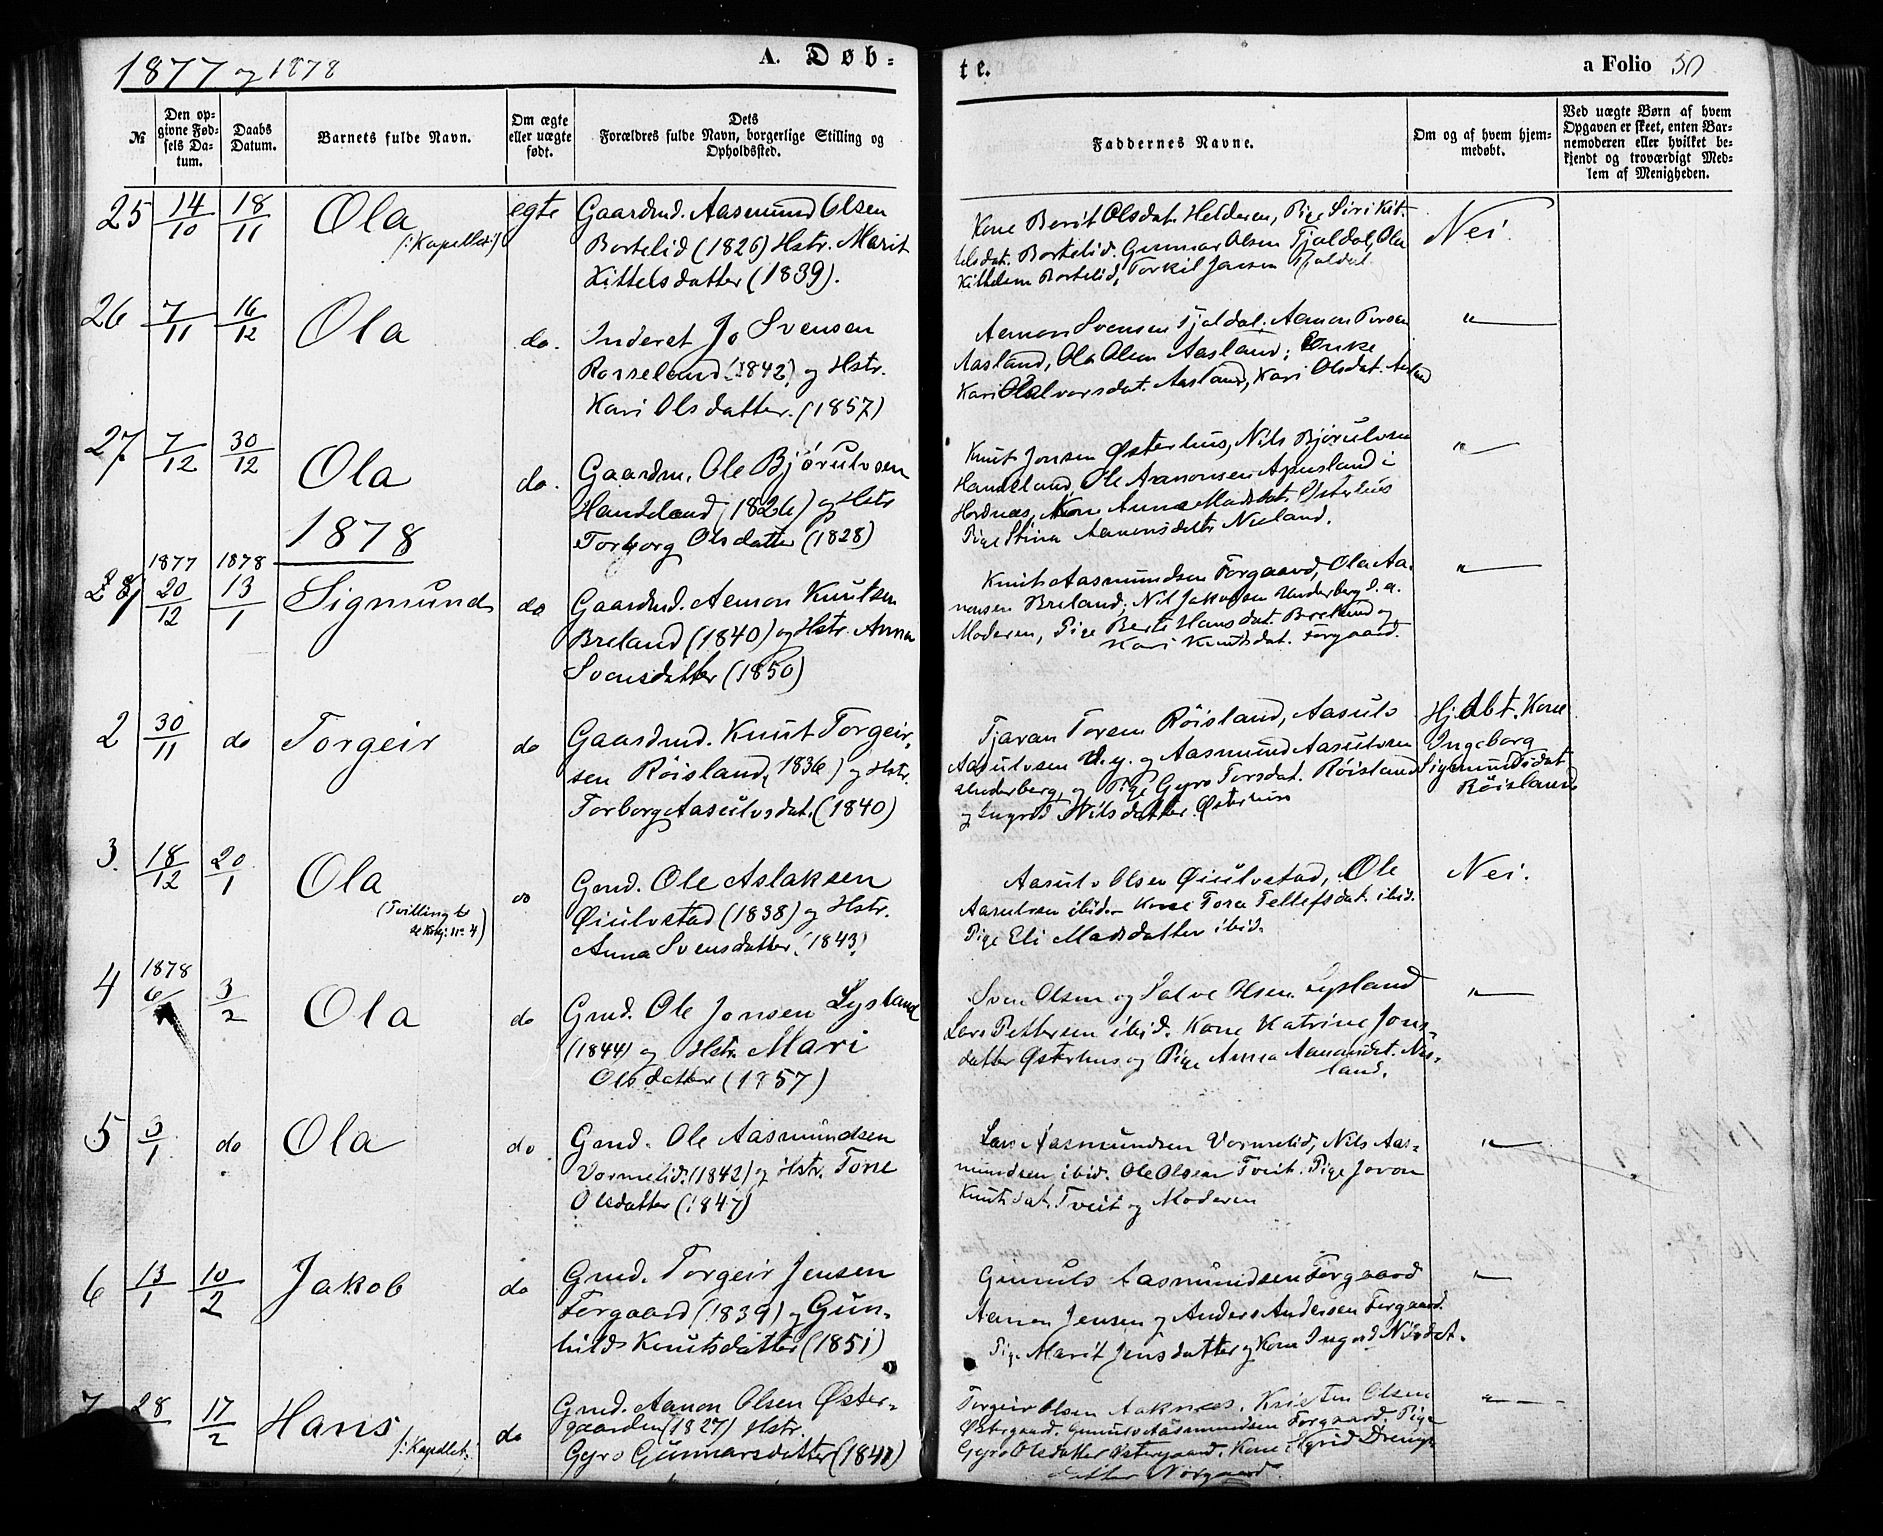 1877 og 1878
A. Døb-
te.
a Folio 50
№
Den op-
givne Fød-
sels Da-
tum.
Daabs
Datum.
Barnets fulde Navn.
Om ægte
eller uægte
født.
Dets
Forældres fulde Navn, borgerlige Stilling og
Opholdssted.
Faddernes Navne.
Om og af hvem hjem-
medøbt.
Ved uægte Børn af hvem
Opgaven er skeet, enten Bar-
nemoderen eller hvilket be-
kjendt og troværdigt Med-
lem af Menigheden.
25 14/10 18/11 Ola (:Kapellet:) egte
Gaardmd. Aasmund Olsen
Bortelid (1826) Hstr. Marit
Kittelsdatter (1839).
Kone Berit Olsdat. Helderen, Pige Siri Kit-
telsdat. Bortelid. Gunnar Olsen Fjaldal, Ola
Kittelsen Bortelid, Torkil Jensen Fjaldal
Nei.
26 7/11 16/12 Ola do.
Inderst Jo Svensen
Rosseland (1842) og Hstr.
Kari Olsdatter. (1857)
Aanon Svensen Fjaldal, Aanon
Aasland, Ola Olsen Aasland; Enke
Kari Olsdat. Aasland
"
27 7/12 30/12 Ola do.
Gaardm. Ole Bjørulvsen
Handeland (1826) og Hstr
Torborg Olsdatter (1828)
Knut Jonsen Østerhus, Nils Bjørulvsen
Handeland, Ole Aanonsen i
Kone Anna Madsdat. Østerhus
Pige Stina Aanonsdatter
"
1878
1877 1878
28 1 20/12 13/1 Sigmund do
Gaardmd. Aanon Knutsen
Breland (1840) og Hstr. Anna
Svensdatter (1850)
Knut Aasmundsen Forgaard, Ola Aa-
nonsen Breland, Nil Jakobsen Underberg
Moderen, Pige Berte Hansdat. Breland og
Kari Knutsdat. Forgaard.
"
2 30/11 do Torgeir do
Gaardmd. Knut Torgeir-
sen Röisland, (1836) og Hstr.
Torborg Aasulvsdat. (1840)
Tjøran Toresen Röisland, Aasulv
Aasulvsen d.y. og Aasmund Aasulvsen
Underberg, og Pige Gyro Torsdat. Röisland
og Ingrid Nilsdatter Østerhus
Hj.dbt. Kone
Ingeborg
Sigmundsdat.
Röisland
3. 18/12 20/1 Ola (Tvilling do
Gmd. Ole Aslaksen
Øiulvstad (1838) og Hstr.
Anna Svensdatter (1843)
Aasulv Olsen Øiulvstad, Ole
Aasulvsen ibid. Kone Tora Tellefsdat. ibid.
Pige Eli Madsdatter ibid.
Nei.
4 1878 6/ 3/2 Ola do
Gmd. Ole Jonsen Lysland
(1844) og Hstr. Mari
Olsdatter (1857)
Sven Olsen og Salve Olsen Lysland
Lars Pettersen ibid. Kone Katrine Jons-
datter Østerhus og Pige Anna
land.
"
5 3/1 do Ola do.
Gmd. Ole Aasmundsen
Vormelid. (1842) og Hstr. Tone
Olsdatter (1847)
Lars Aasmundsen Vormelid, Nils Aas-
mundsen ibid. Ole Olsen Tveit. Pige Joron
Knutsdat. Tveit og Moderen
"
6 13/1 10/2 Jakob do
Gmd. Torgeir Jensen
Forgaard (1839) og Gun-
hild Knutsdatter (1851)
Gunulv Aasmundsen Forgaard
Aanon Jensen og Anders Andersen Forgaard.
Pige Marit Jensdatter og Kone Ingrid Nilsdat.
"
7 28 17/2 Hans (:Kapellet:) do
Gmd. Aanon Olsen Øster-
gaarden (1827) Hstr.
Gyro Gunnarsdatter (1841)
Torgeir Olsen Aaknes. Kristen Olsen
Østergaard. Gunulv Aasmundsen Forgaard. Pige
Gyro Olsdatter Østergaard. Kone Sigrid Drengs-
datter Norgaard.
"